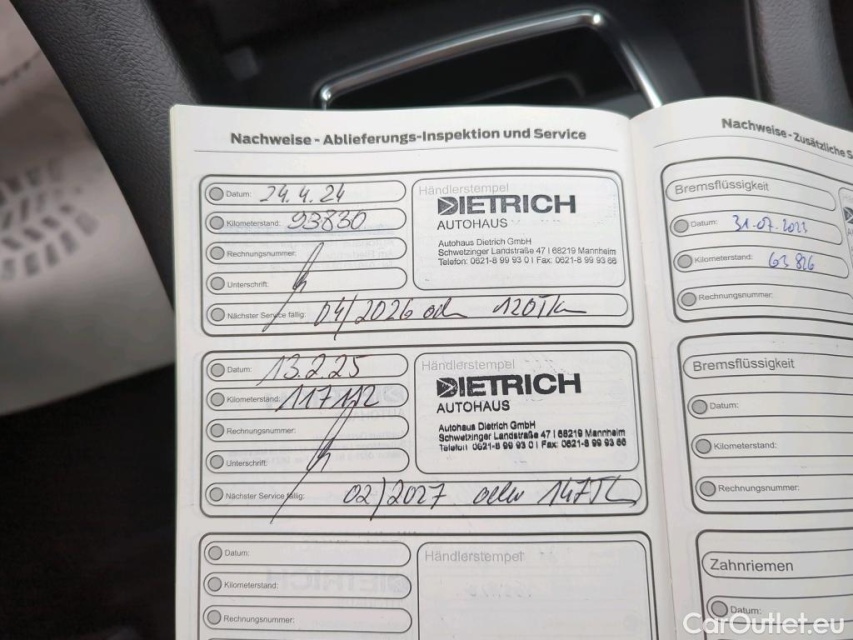 Nachweise - Ablieferungs-Inspektion und Service
Datum: 24.4.24
Kilometerstand: 93830
Rechnungsnummer:
Unterschrift:
Nächster Service fällig: 04/2026 od 120TK
Händlerstempel
DIETRICH
AUTOHAUS
Autohaus Dietrich GmbH
Schwetzinger Landstraße 47 | 68219 Mannheim
Telefon: 0621-8 99 93 0 | Fax: 0621-8 99 93 66
Datum: 13.2.25
Kilometerstand: 117112
Rechnungsnummer:
Unterschrift:
Nächster Service fällig: 02/2027 oder 147TK
Händlerstempel
DIETRICH
AUTOHAUS
Autohaus Dietrich GmbH
Schwetzinger Landstraße 47 | 68219 Mannheim
Telefon: 0621-8 99 93 0 | Fax: 0621-8 99 93 66
Datum:
Kilometerstand:
Rechnungsnummer:
Händlerstempel
Nachweise - Zusätzliche S
Bremsflüssigkeit
Datum: 31-07.2023
Kilometerstand: 63 826
Rechnungsnummer:
Bremsflüssigkeit
Datum:
Kilometerstand:
Rechnungsnummer:
Zahnriemen
Datum:
CarOutlet.eu